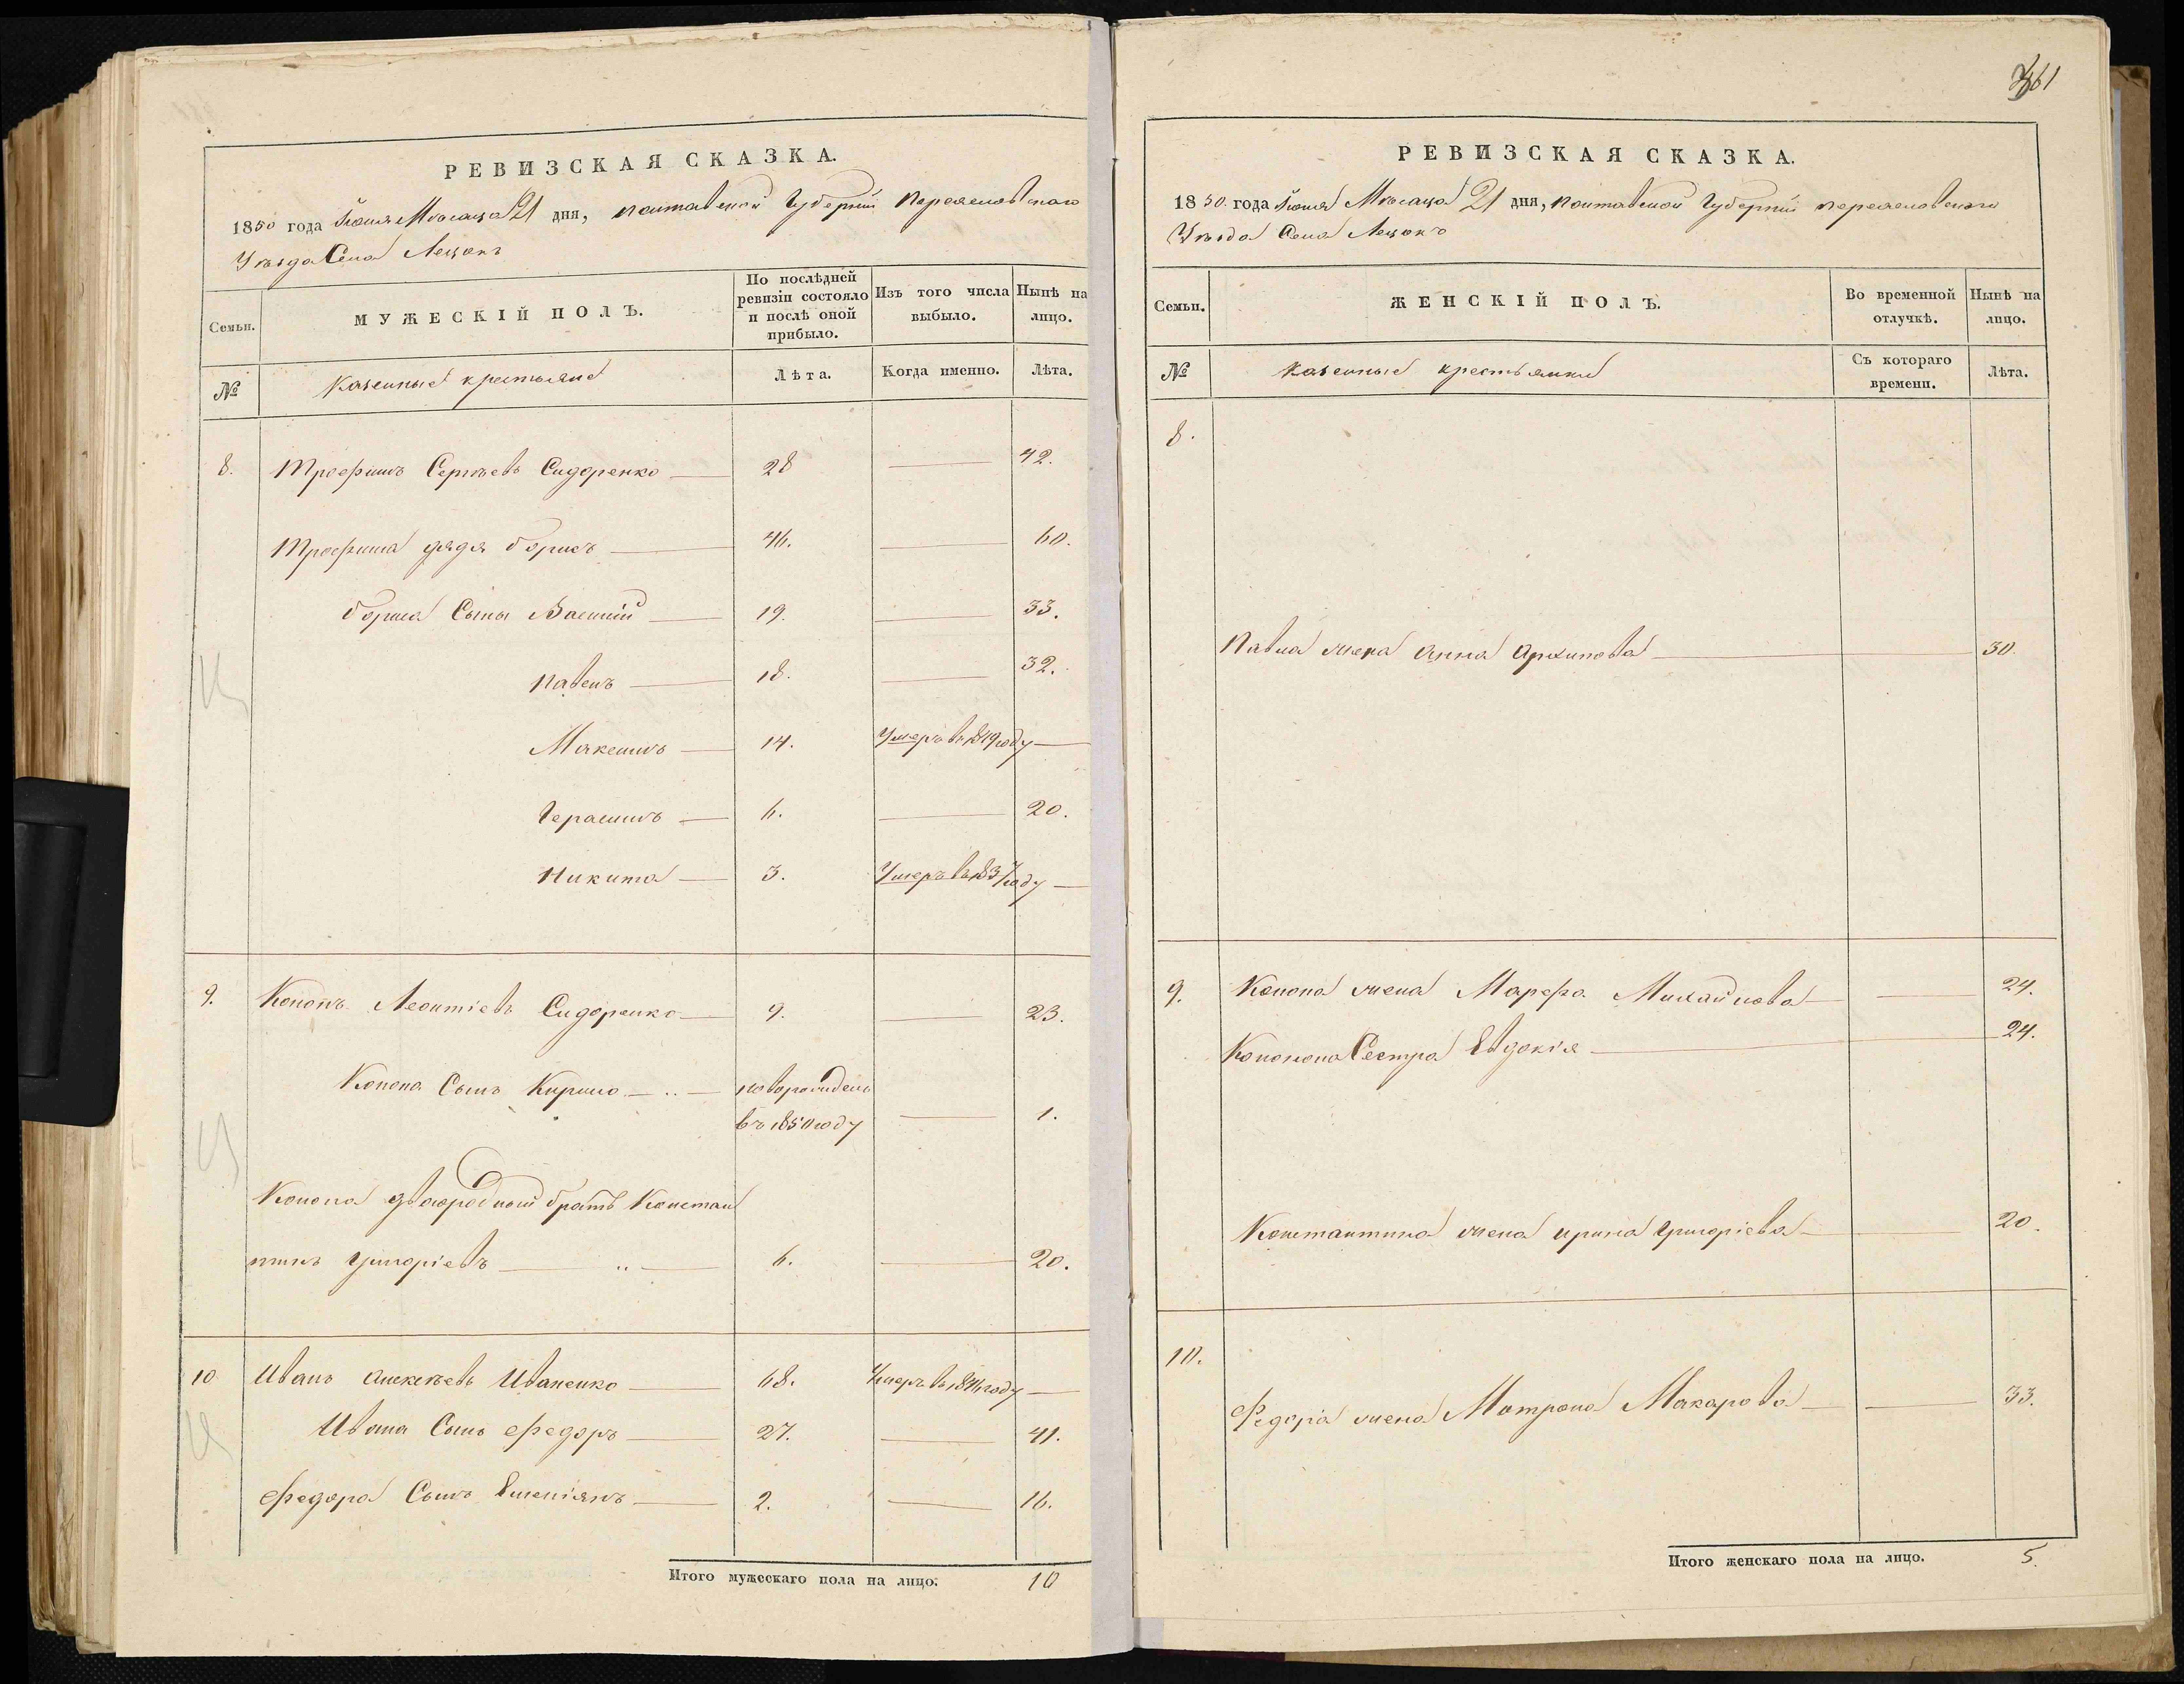 РЕВИЗСКАЯ СКАЗКА.
1850 года Іюня Мѣсяца 21 дня, Полтавской Губерніи Переяславскаго
Уѣзда Села Лецокъ
Семьи. МУЖЕСКІЙ ПОЛЪ. По послѣдней ревизіи состояло и послѣ оной прибыло. Изъ того числа выбыло. Нынѣ на лицо.
№ Казенные крестьяне Лѣта. Когда именно. Лѣта.
8. Трофимъ Сергѣевъ Сидоренко 28 42.
Трофима дядя Борисъ 46. 60.
Бориса Сыны Василій 19. 33.
Павелъ 18. 32.
Максимъ 14. Умеръ въ 1849 году
Герасимъ 6. 20.
Никита 3. Умеръ въ 1837 году
9. Кононъ Леонтіевъ Сидоренко 9. 23.
Конона Сынъ Кирило новорожденъ
въ 1850 году 1.
Конона двоюродный братъ Констан
тинъ Григоріевъ 6. 20.
10 Иванъ Алексѣевъ Иваненко 68. Умеръ въ 1846 году
Ивана Сынъ Федоръ 27. 41.
Федора Сынъ Емеліянъ 2. 16.
Итого мужескаго пола на лицо. 10
361
РЕВИЗСКАЯ СКАЗКА.
1850. года Іюня Мѣсяца 21 дня, Полтавской Губерніи Переяславскаго
Уѣзда Села Лецокъ
Семьи. ЖЕНСКІЙ ПОЛЪ. Во временной отлучкѣ. Нынѣ на лицо.
№ Казенные крестьянки Съ котораго времени. Лѣта.
8.
Павла жена Анна Архипова 30.
9. Конона жена Марфа Михайлова 24.
Конона Сестра Евдокія 24.
Константина жена Ирина Григоріева 20.
10.
Федора жена Матрона Макарова 33.
Итого женскаго пола на лицо. 5.